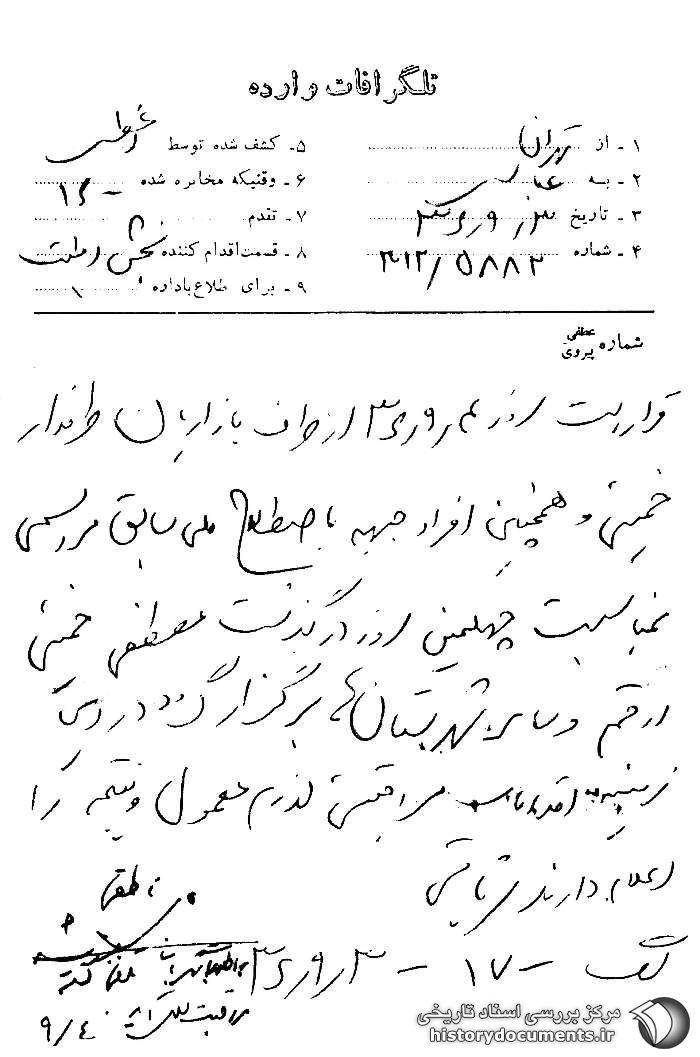 تلگرافات وارده
۱ - از تهران
۲ - به
۳ - تاریخ ۳۶/۹/۳
۴ - شماره ۳۱۲/۵۸۸۲
۵ - کشف شده توسط
۶ - وقتیکه مخابره شده ۱۶۰۰
۷ - تقدم
۸ - قسمت اقدام کننده بخش
۹ - برای طلاع باداره
شماره عطفی
پیروی
قرار است روز ۳۶/۹/۴ از طرف بازاریان طرفدار
خمینی و همچنین افراد جبهه باصطلاح ملی سابق مراسمی
بمناسبت چهلمین روز درگذشت مصطفی خمینی
در قم و سایر شهرستان ها برگزار گردد در این
زمینه مراقبتی لازم معمول و نتیجه را
اعلام دارند
گ - ۱۷ - ۳۶/۹/۳
۹/۴
مرکز بررسی اسناد تاریخی
historydocuments.ir